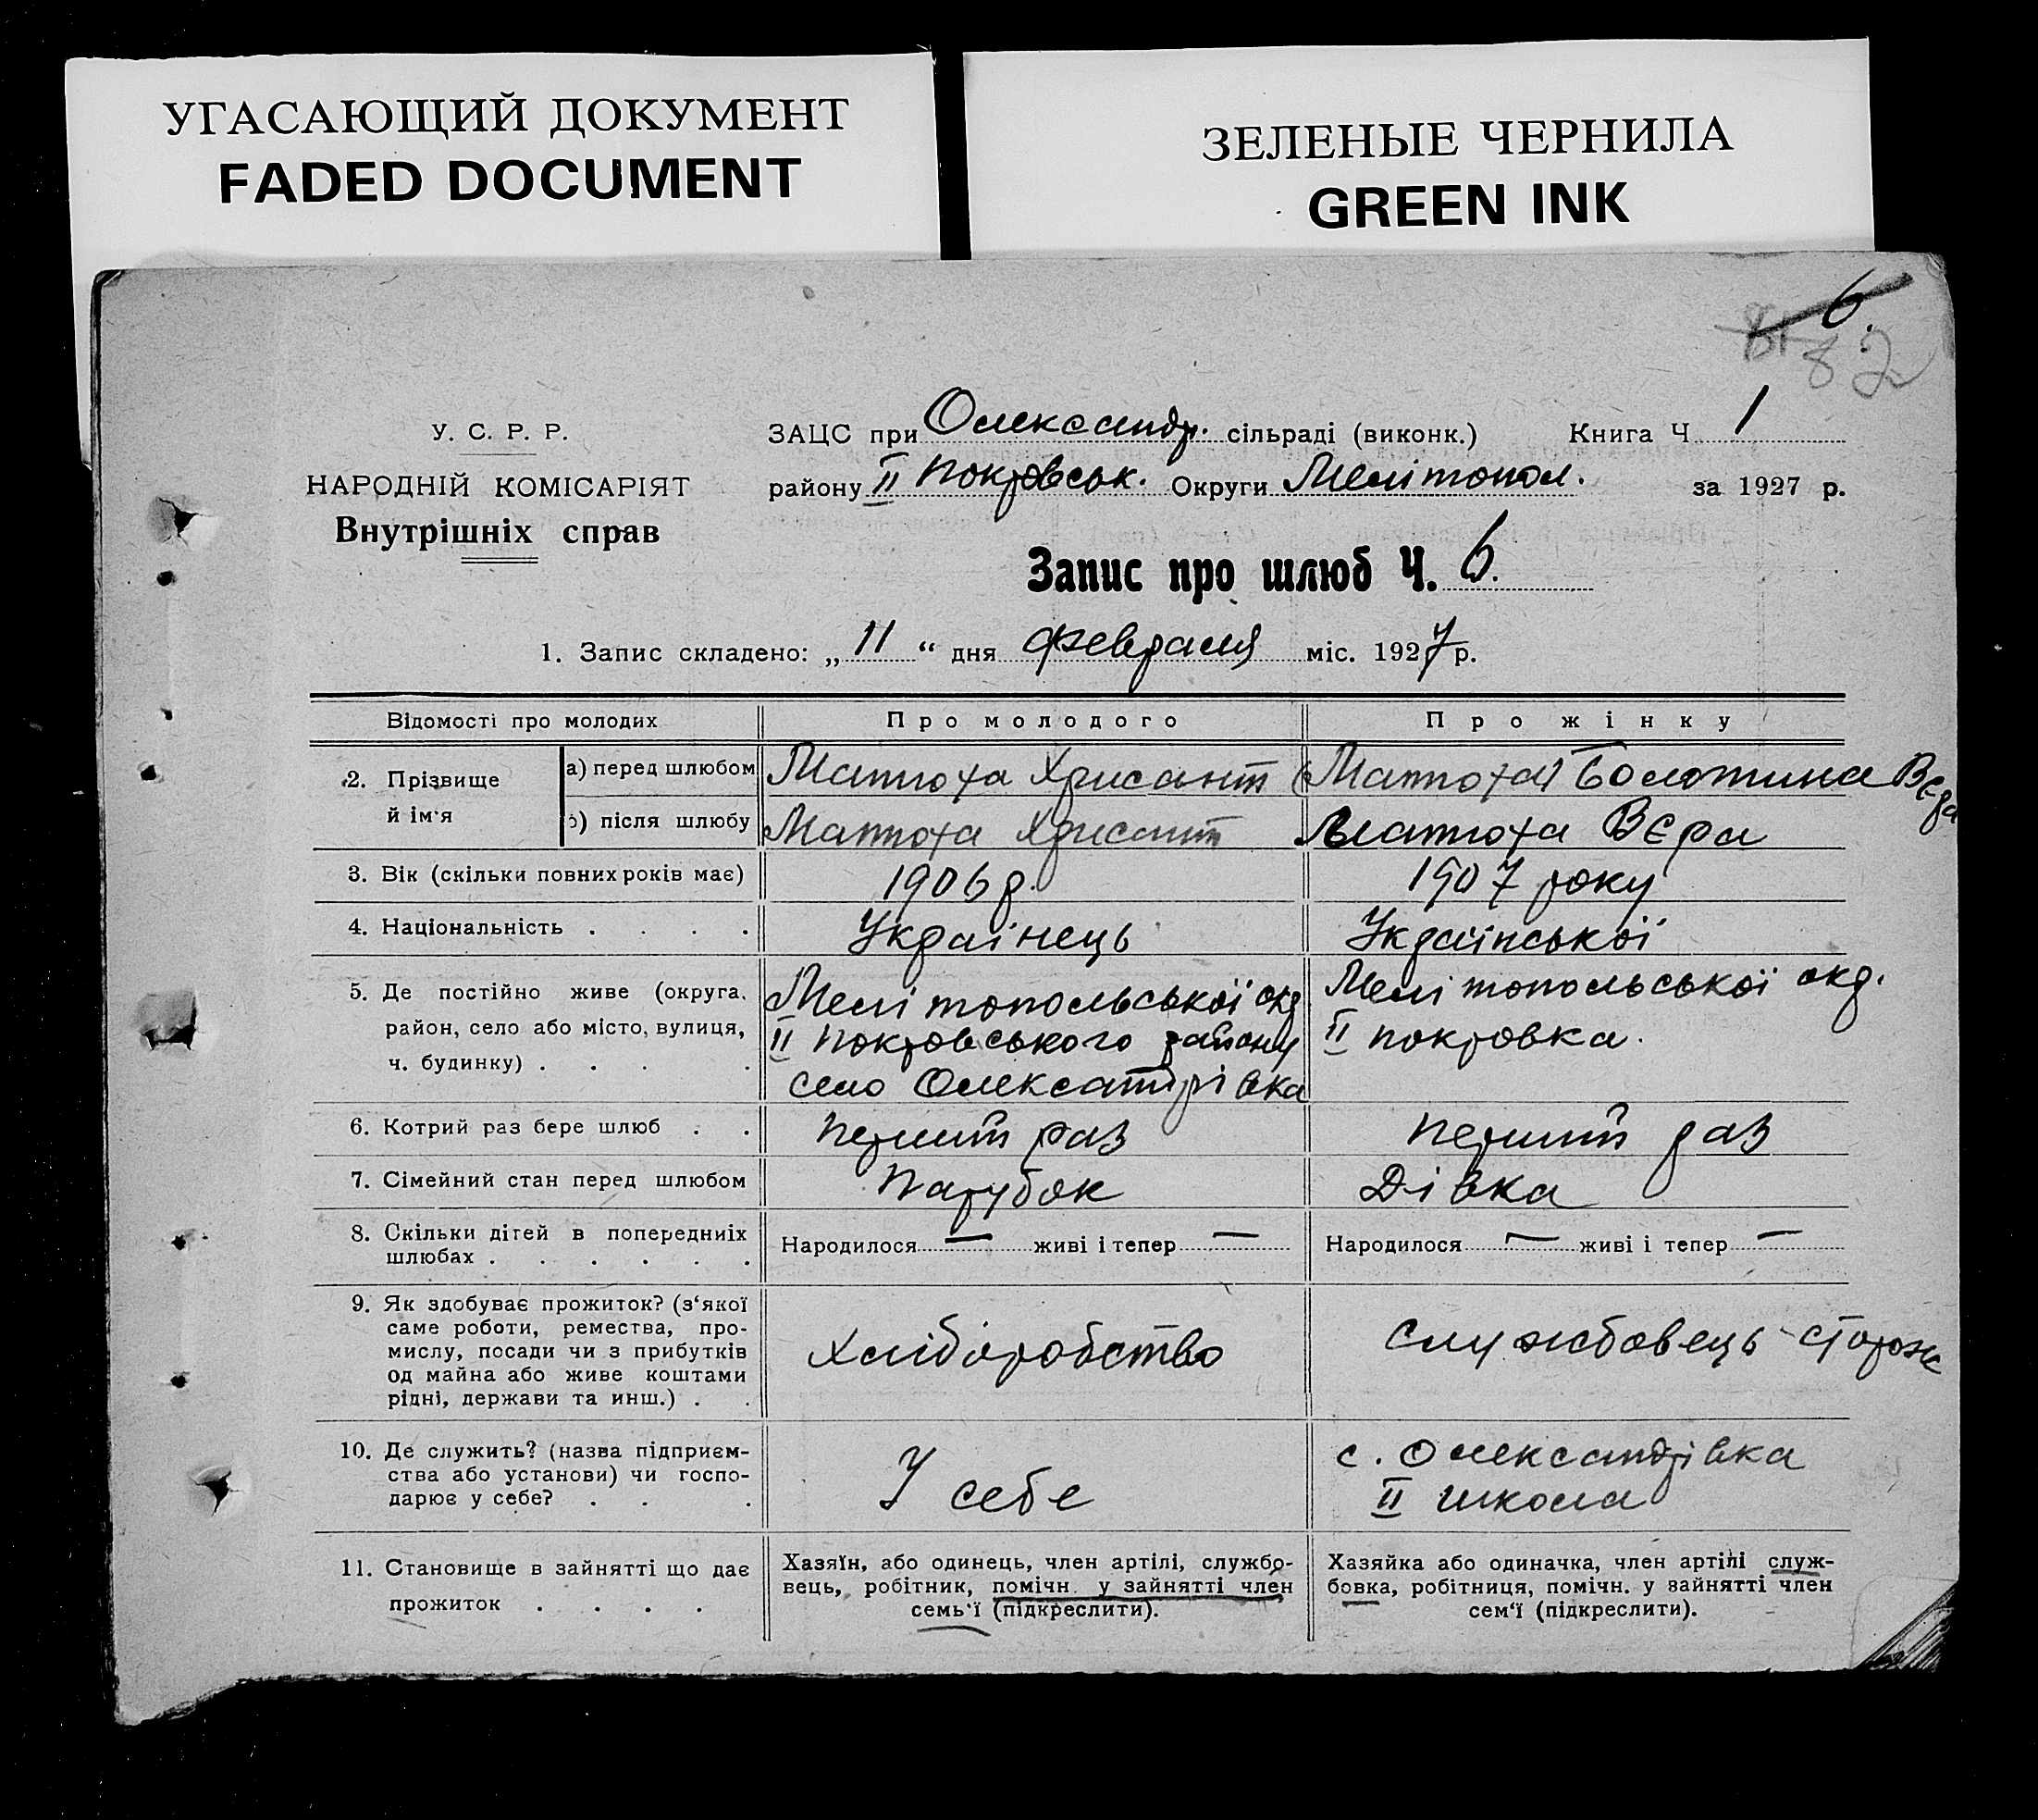 УГАСАЮЩИЙ ДОКУМЕНТ
FADED DOCUMENT
ЗЕЛЕНЫЕ ЧЕРНИЛА
GREEN INK
6.
82
У. С. Р. Р.
НАРОДНІЙ КОМІСАРІЯТ
Внутрішніх справ
ЗАЦС при Олександр. сільраді (виконк.) Книга Ч. 1
району II Покровськ. Округи Мелітопол. за 1927 р.
Запис про шлюб Ч. 6.
1. Запис складено: „ 11 “ дня февраля міс. 1927 р.
Відомості про молодих Про молодого Про жінку
2. Прізвище й ім'я
а) перед шлюбом Матюха Хрисант (Матюха) Болотина Вєра
б) після шлюбу Матюха Хрисант Матюха Вєра
3. Вік (скільки повних років має) 1906 р. 1907 року
4. Національність . . . . Українець Української
5. Де постійно живе (округа, район, село або місто, вулиця, ч. будинку) . . . .
Мелітопольської окр
II Покровського району
село Олександрівка
Мелітопольської окр.
II покровка.
6. Котрий раз бере шлюб . . Перший раз Перший раз
7. Сімейний стан перед шлюбом Парубок Дівка
8. Скільки дітей в попередниіх шлюбах . . . . . .
Народилося — живі і тепер — Народилося — живі і тепер —
9. Як здобуває прожиток? (з‘якої
саме роботи, ремества, про-
мислу, посади чи з прибутків
од майна або живе коштами
рідні, держави та инш.) . .
Хліборобство
Службовець - сторож
10. Де служить? (назва підприєм-
ства або установи) чи госпо-
дарює у себе? . . .
У себе
с. Олександрівка
II школа
11. Становище в зайнятті що дає
прожиток . . . .
Хазяїн, або одинець, член артілі, службо-
вець, робітник, помічн. у зайнятті член
семь‘ї (підкреслити).
Хазяйка або одиначка, член артілі служ-
бовка, робітниця, помічн. у зайнятті член
сем‘ї (підкреслити).